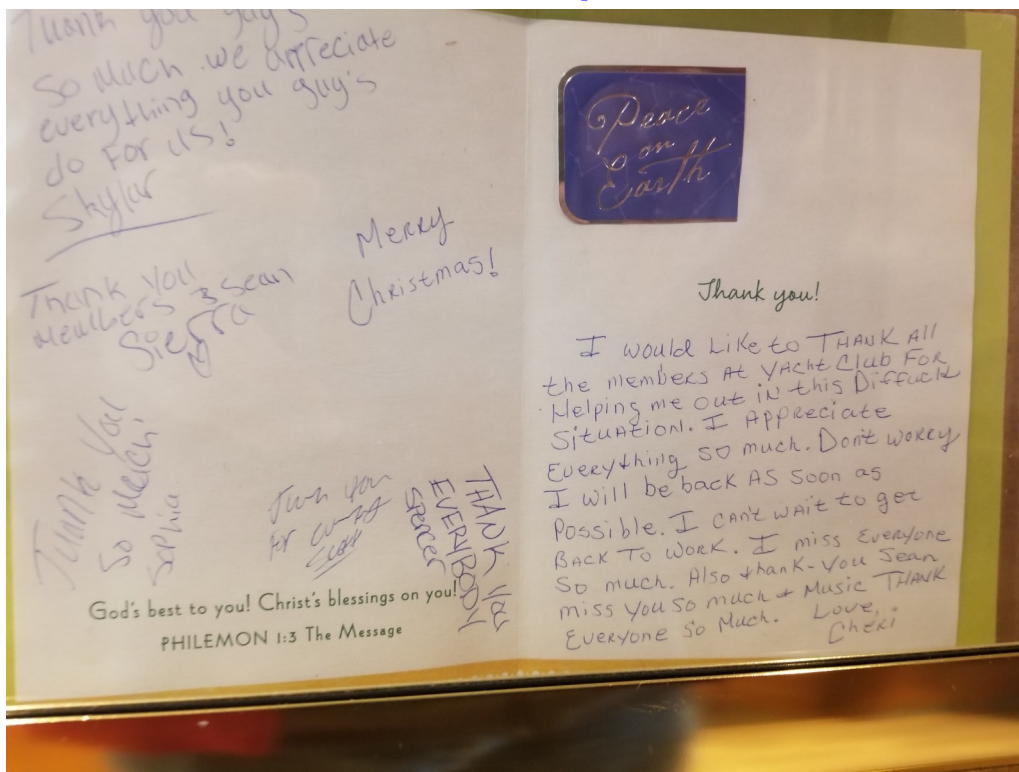 Thank you guy's
So Much we Appreciate
everything you guy's
do For us!
Skylar
Merry
Christmas!
Thank You
Members & Sean
Sierra
Thank You
So Much!
Sophia
you
For
Scott
THANK YOU
EVERYBODY
Spencer
God's best to you! Christ's blessings on you!
PHILEMON 1:3 The Message
Peace
on
Earth
Thank you!
I would Like to THANK All
the members At YAcht Club FOR
Helping me out in this Diffuclt
SITUATION. I APPReciate
Everything so much. Don't worry
I will be back AS Soon as
Possible. I can't wait to get
BACK TO WORK. I miss Everyone
So much. Also thank-You Sean
miss you so much & Music THANK
Everyone So Much. Love,
Cheri